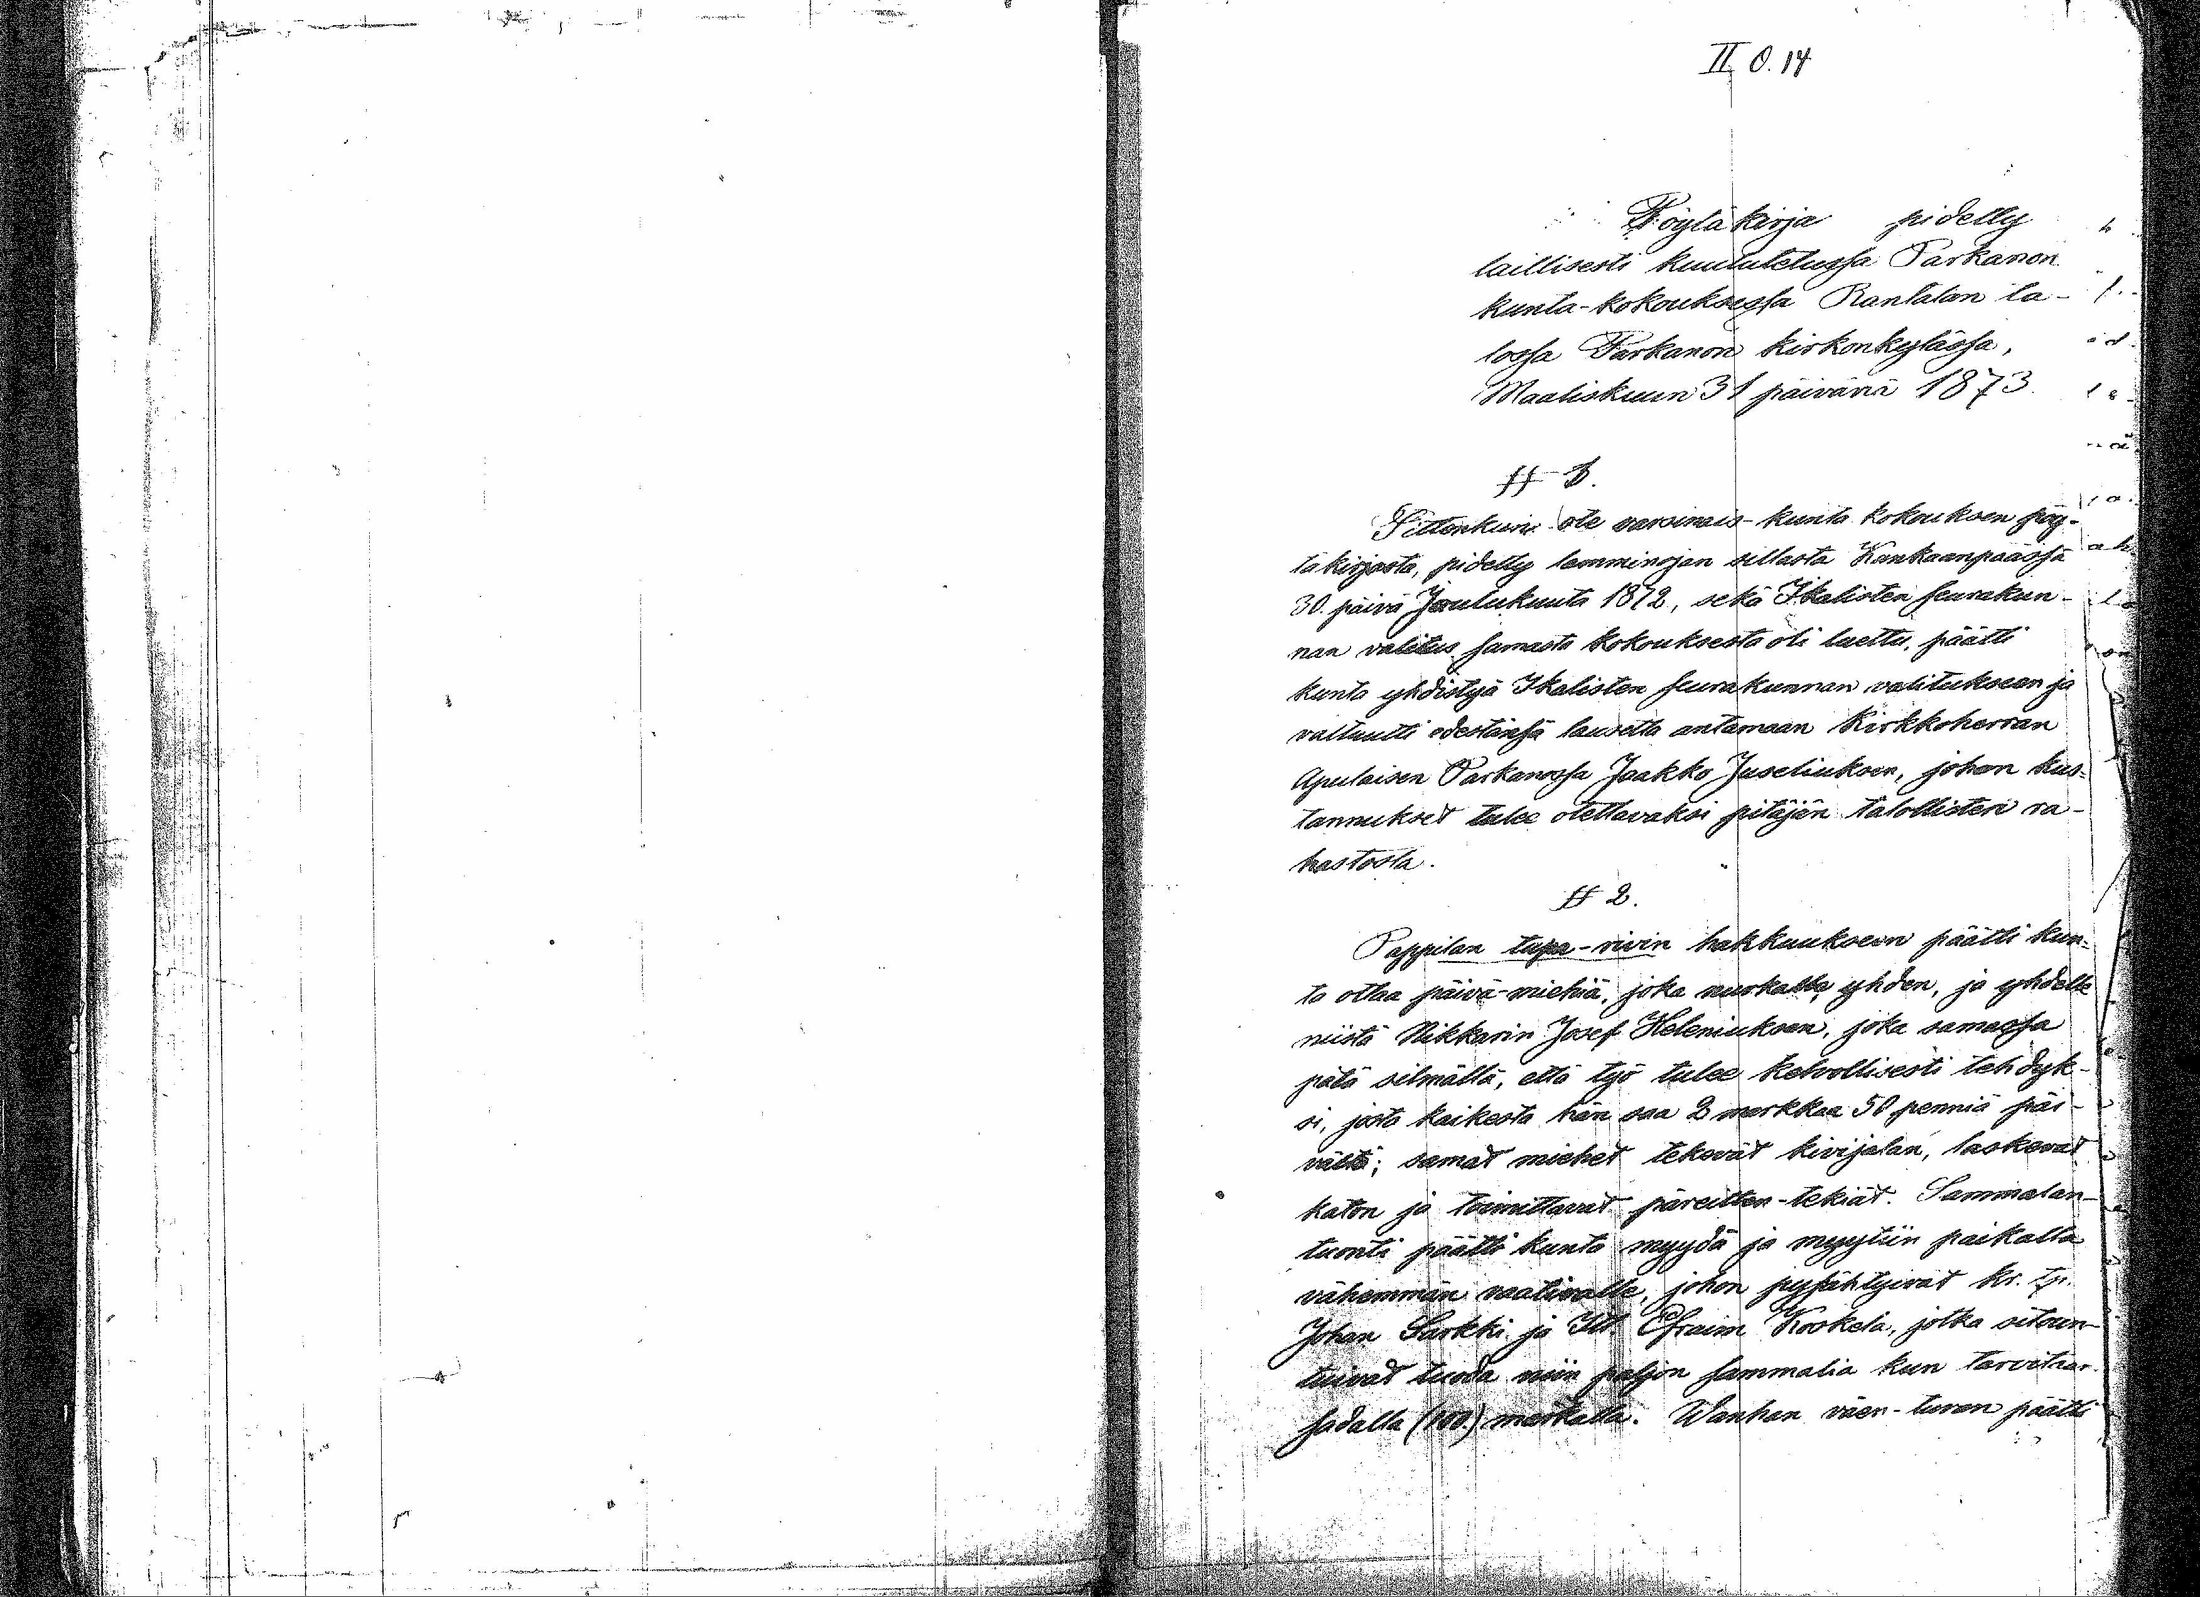 II O. 14
Pöytäkirja pidetty
laillisesti kuulutetussa Parkanon
kunta-kokouksessa Rantalan ta-
lossa Parkanon kirkonkylässä,
Maaliskuun 31 päivänä 1873.
§ 1.
Sittenkuin ote varsinais-kunta kokouksen pöy-
täkirjasta, pidetty lomminojan sillasta Kankaanpäässä
30. päivä Joulukuuta 1872, sekä Ikalisten seurakun-
nan valitus samasta kokouksesta oli luettu, päätti
kunta yhdistyä Ikalisten seurakunnan valitukseen ja
valtuutti edestänsä lausetta antamaan Kirkkoherran
Apulaisen Parkanossa Jaakko Juseliuksen, johon kus-
tannukset tulee otettavaksi pitäjän talollisten ra-
hastosta.
§ 2.
Pappilan tupa-rivin hakkuukseen päätti kun-
ta ottaa päivä-miehiä, joka nurkalle yhden, ja yhdelle
niistä Nikkarin Josef Heleniuksen, joka samassa
pitä silmällä, että työ tulee kelvollisesti tehdyk-
si, josta kaikesta hän saa 2 markkaa 50 penniä päi-
vältä; samat miehet tekevät kivijalan, laskevat
katon ja toimittavat päreitten-tekiät. Sammalan-
tuonti päätti kunta myydä ja myytiin paikalla
vähemmän vaativalle, johon pysähtyivät kr. tp.
Johan Särkki ja Itl. Efraim Koskela, jotka sitoun-
tuivat tuoda niin paljon sammalia kun tarvitaan
sadalla (100.) markalla. Wanhan väen-tuvan päätti